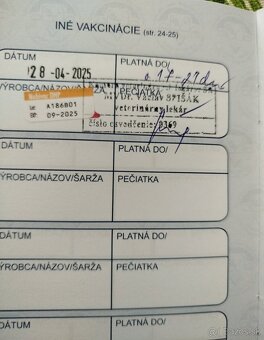 INÉ VAKCINÁCIE (str. 24-25)
DÁTUM PLATNÁ DO/
28 -04- 2025
VÝROBCA/NÁZOV/ŠARŽA PEČIATKA
MVDr. Václav
A186B01 veterinárny lekár
09-2025
číslo osvedčenie 2369
DÁTUM PLATNÁ DO/
VÝROBCA/NÁZOV/ŠARŽA PEČIATKA
DÁTUM PLATNÁ DO/
VÝROBCA/NÁZOV/ŠARŽA PEČIATKA
DÁTUM PLATNÁ DO/
VÝROBCA/NÁZOV/ŠARŽA PEČIATKA